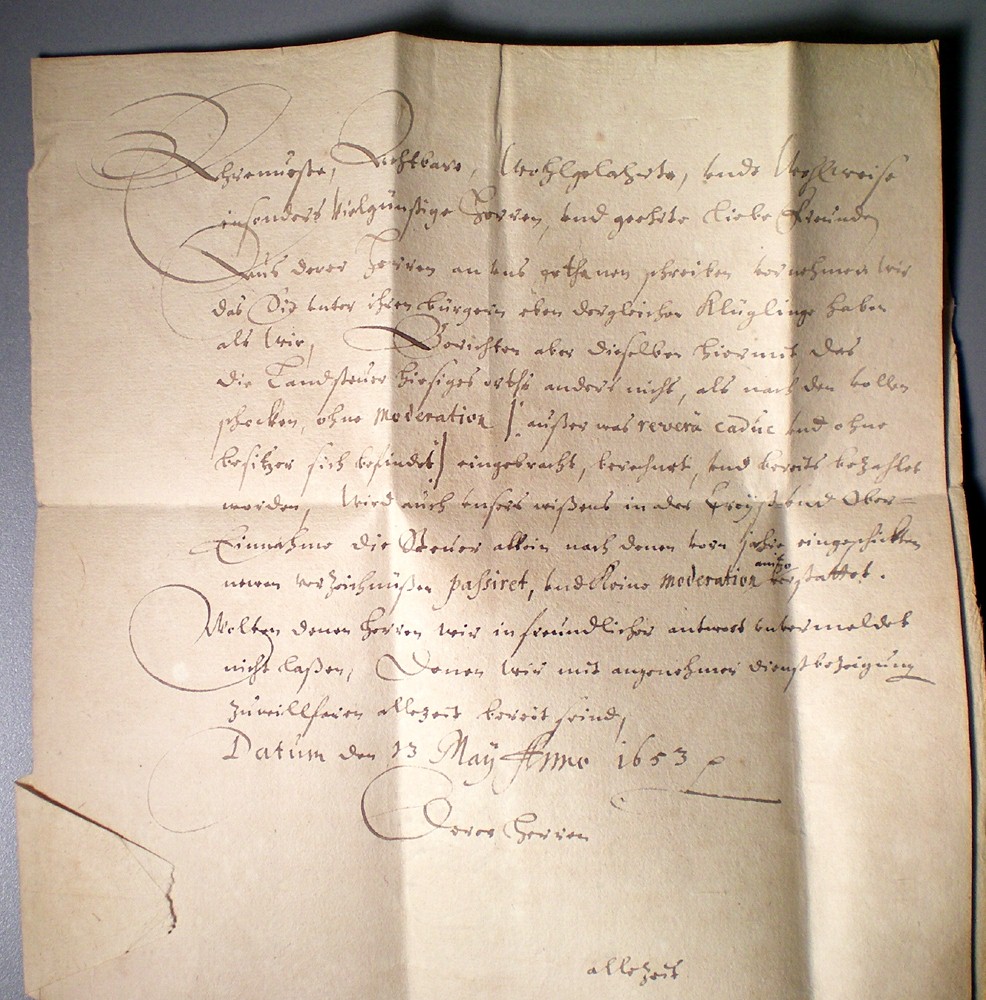 Ehrenveste, Achtbare, Wohlgelahrte, vnde Wohlweise
insonders Vielgünstige Herren, vnd geehrte liebe Freunde
Aus derer Herren an vns gethanen schreiben vernehmen wir
das Sie vnter ihren bürgern eben dergleichen Klüglinge haben
als wir, Berichten aber dieselben hiermit das
die Landsteuer hiesiges orths anders nicht, als nach den vollen
schocken, ohne moderation /: außer was reverà caduc vnd ohne
besitzer sich befindet / eingebracht, berechnet, vnd bereits bezahlet
worden, Wird auch vnsers wißens in der Creyß vnd Ober-
Einnahme die Steuer allein nach denen vorn jahre eingeschickten
newen verzeichnüßen passiret, vnd keine moderation anitzo verstattet.
Wolten denen Herren wir in freundlicher antwort vnvermeldet
nicht laßen, Denen wir mit angenehmer dienstbezeigung
zuwillfaren allezeit bereit seind,
Datum den 13 May Anno 1653
Derer Herren
allezeit